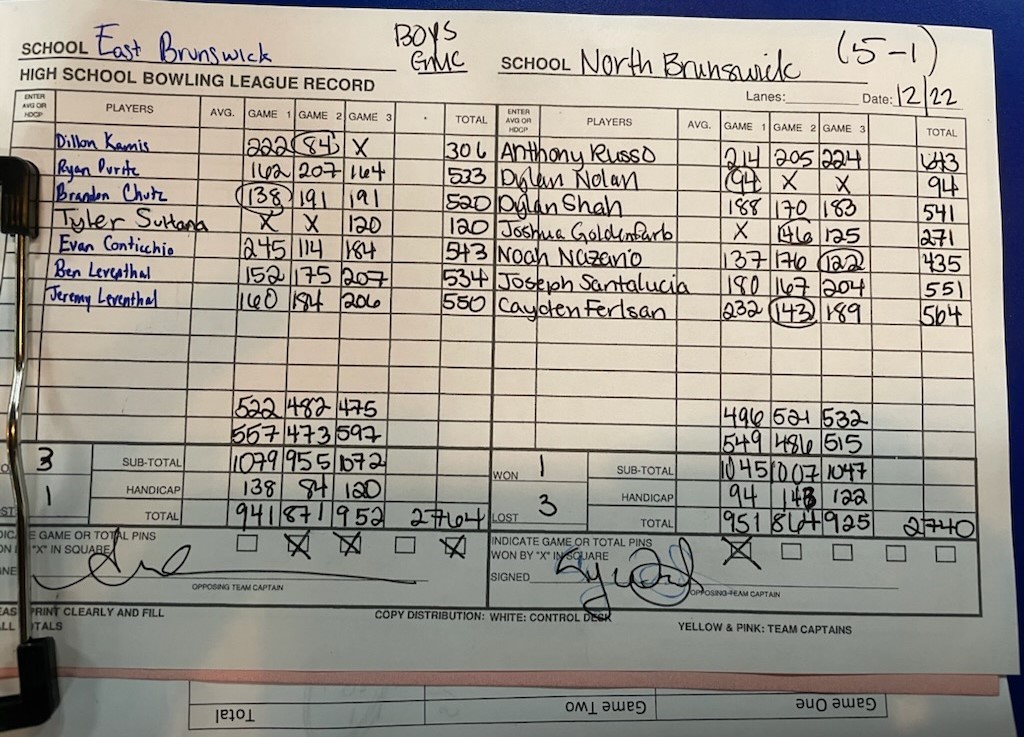 SCHOOL East Brunswick BOYS GMC SCHOOL North Brunswick (5-1)
HIGH SCHOOL BOWLING LEAGUE RECORD Lanes: Date: 12/22
ENTER AVG OR HDCP PLAYERS AVG. GAME 1 GAME 2 GAME 3 TOTAL ENTER AVG OR HDCP PLAYERS AVG. GAME 1 GAME 2 GAME 3 TOTAL
Dillon Kamis 222 84 X 306 Anthony Russo 214 205 224 643
Ryan Purite 162 207 164 533 Dylan Nolan 94 X X 94
Brandon Chutz 138 191 191 520 Dylan Shah 188 170 183 541
Tyler Sultana X X 120 120 Joshua Goldenfarb X 146 125 271
Evan Conticchio 245 114 184 543 Noah Nazario 137 176 122 435
Ben Leventhal 152 175 207 534 Joseph Santalucia 180 167 204 551
Jeremy Leventhal 160 184 206 550 Cayden Ferlsan 232 143 189 564
522 482 475 496 521 532
557 473 597 549 486 515
3 SUB-TOTAL 1079 955 1072 WON 1 SUB-TOTAL 1045 1007 1047
1 HANDICAP 138 84 120 LOST 3 HANDICAP 94 143 122
TOTAL 941 871 952 2764 TOTAL 951 864 925 2740
GAME OR TOTAL PINS INDICATE GAME OR TOTAL PINS
"X" IN SQUARE X X X WON BY "X" IN SQUARE X
SIGNED
OPPOSING TEAM CAPTAIN OPPOSING TEAM CAPTAIN
PRINT CLEARLY AND FILL COPY DISTRIBUTION: WHITE: CONTROL DESK YELLOW & PINK: TEAM CAPTAINS
Total Game Two Game One